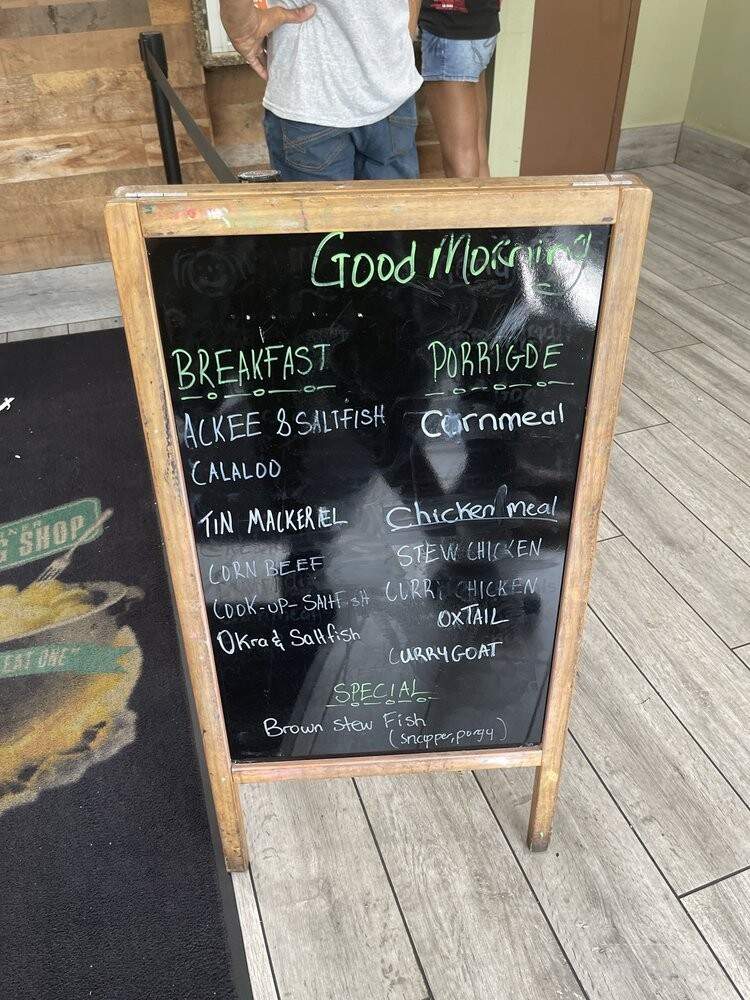 Good Morning
BREAKFAST
ACKEE & SALTFISH
CALALOO
TIN MACKEREL
CORN BEEF
COOK-UP-SALTFISH
OKra & Saltfish
PORRIGDE
Cornmeal
Chicken meal
STEW CHICKEN
CURRY CHICKEN
OXTAIL
CURRY GOAT
SPECIAL
Brown Stew Fish
(snapper, porgy)
SHOP
EAT ONE"